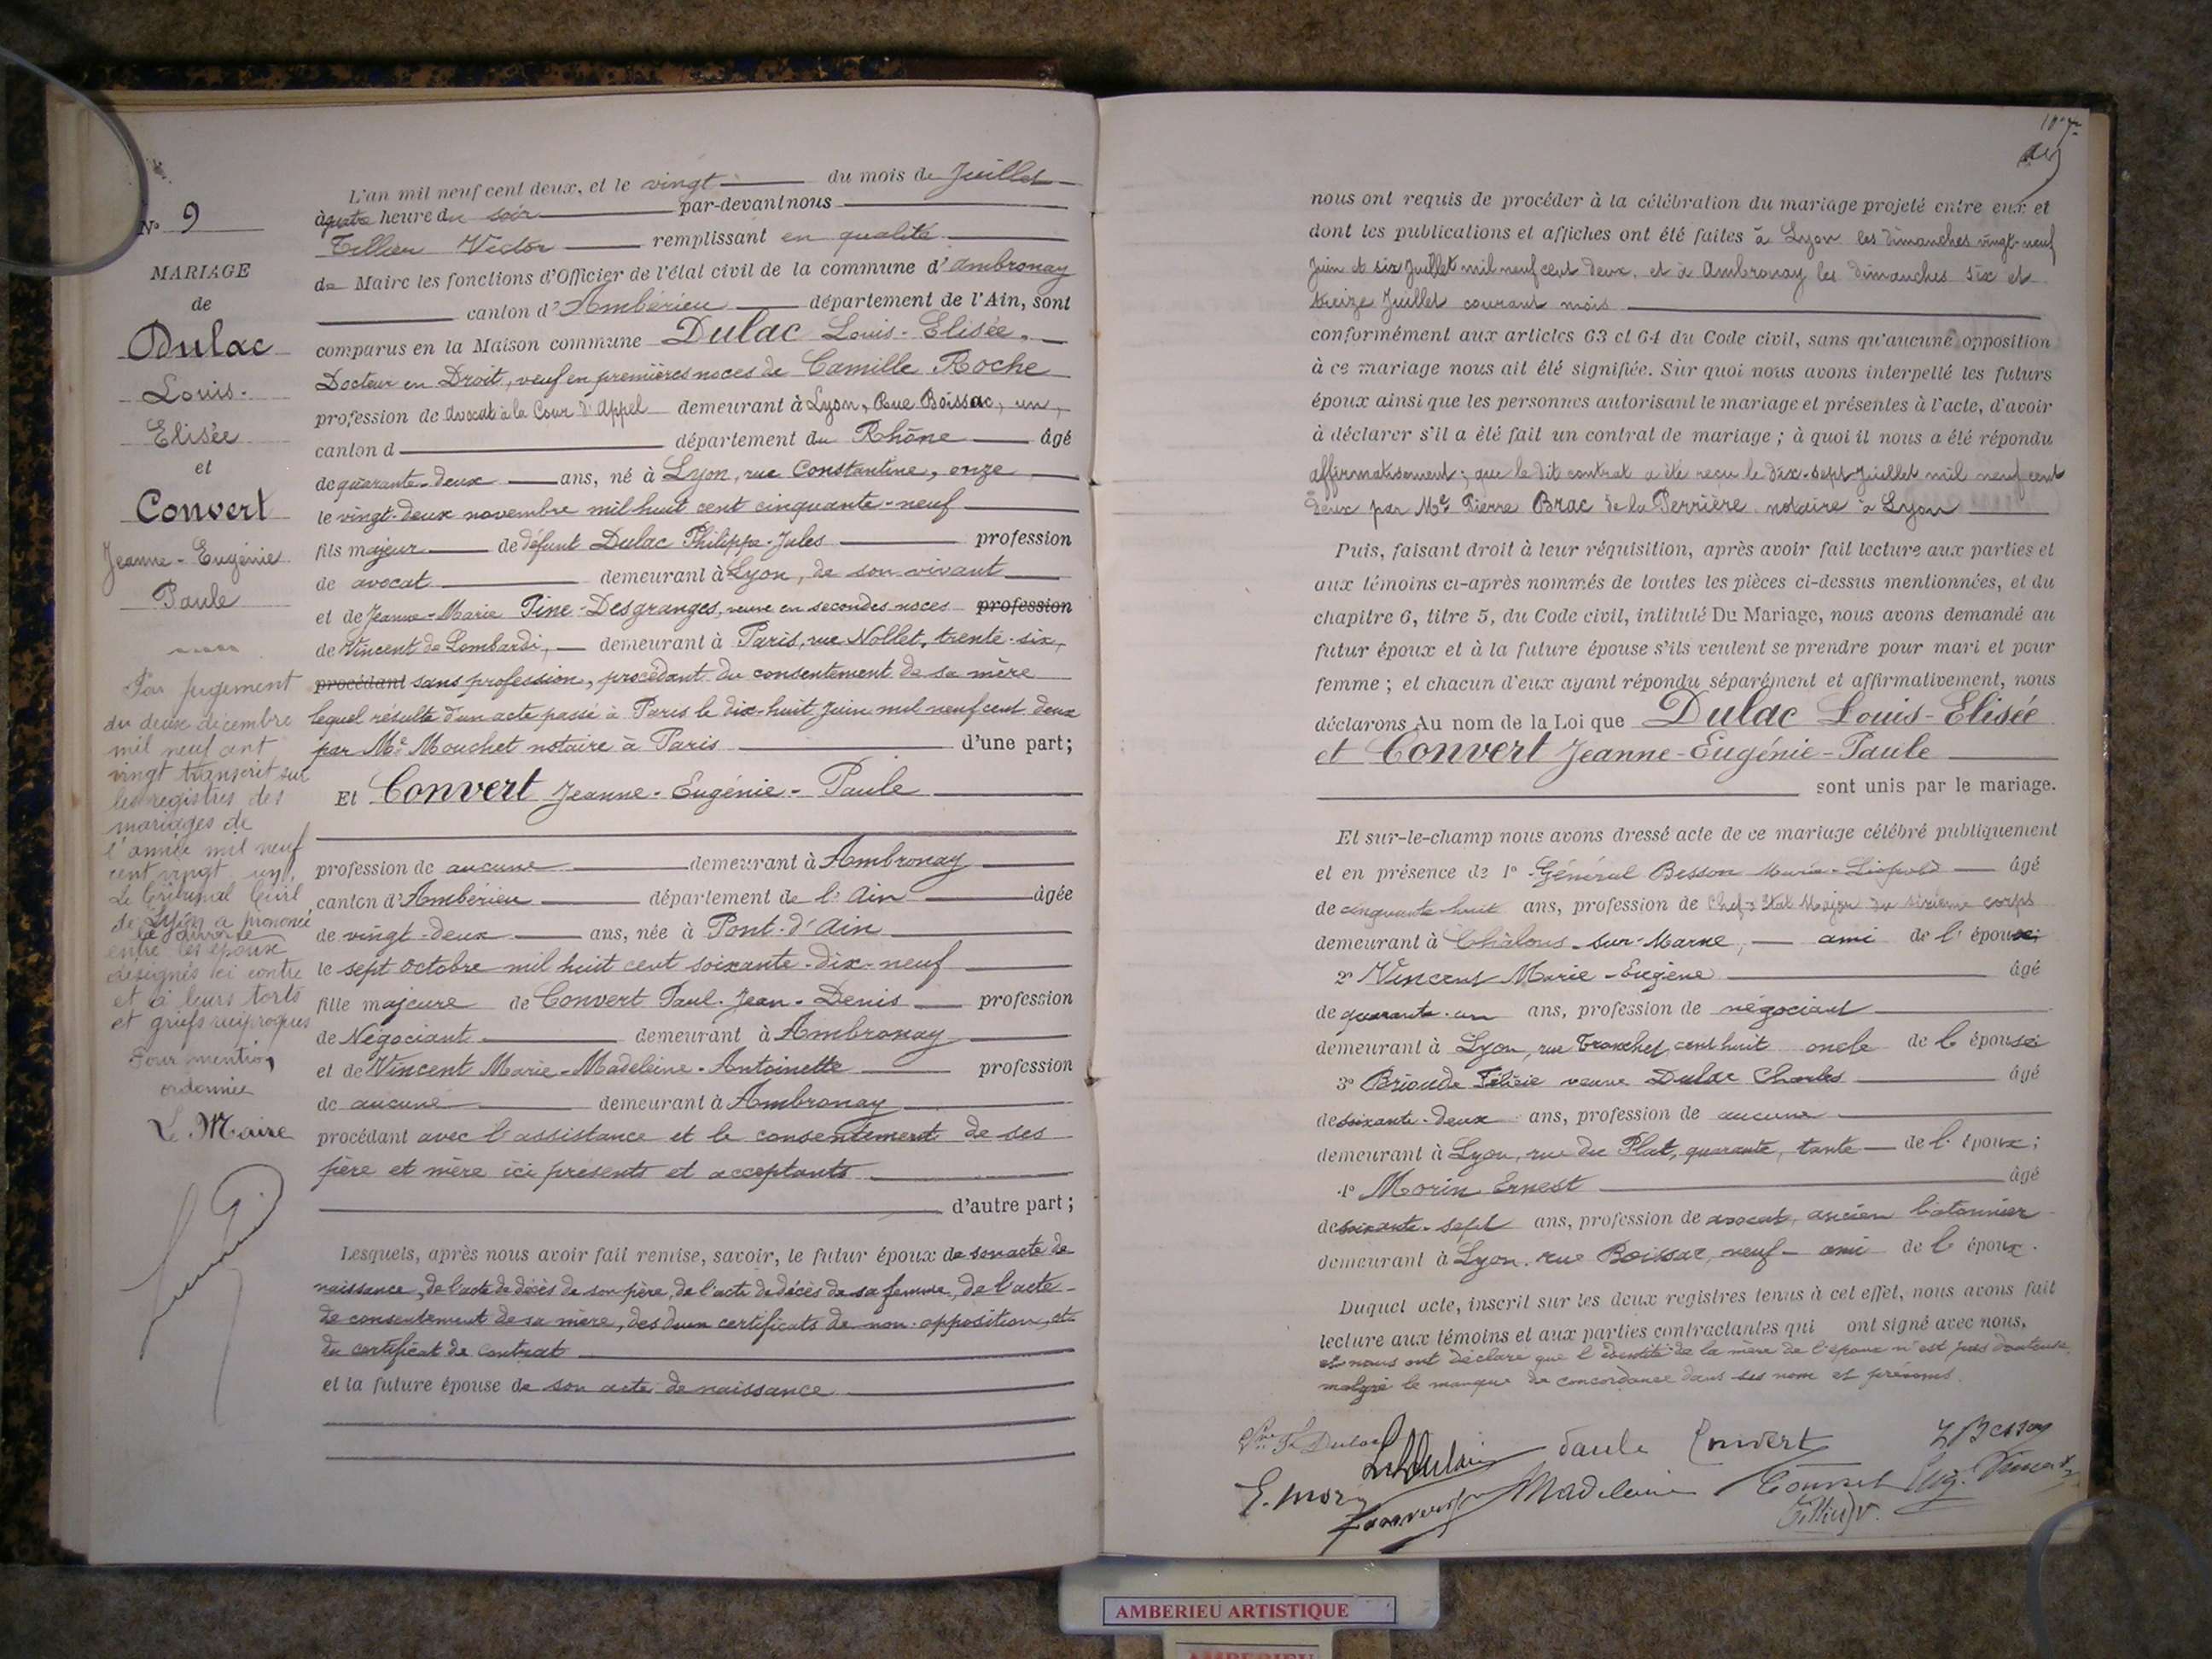 No 9
MARIAGE
de
Dulac
Louis-
Elisée
et
Convert
Jeanne-Eugénie
Paule
Par jugement
du deux décembre
mil neuf cent
vingt transcrit sur
les registres des
mariages de
l'année mil neuf
cent vingt un,
Le Tribunal Civil
de Lyon a prononcé
le divorce
entre les époux
désignés ci contre
et à leurs torts
et griefs réciproques
Pour mention
ordonnée
Le Maire
L'an mil neuf cent deux, et le vingt du mois de Juillet
à quatre heure du soir par-devant nous
Tillier Victor remplissant en qualité
de Maire les fonctions d'Officier de l'état civil de la commune d'Ambronay
canton d'Ambérieu département de l'Ain, sont
comparus en la Maison commune Dulac Louis-Elisée.
Docteur en Droit, veuf en premières noces de Camille Roche
profession de avocat à la Cour d'Appel demeurant à Lyon, Rue Boissac, un,
canton d département du Rhône âgé
de quarante-deux ans, né à Lyon, rue Constantine, onze
le vingt-deux novembre mil huit cent cinquante-neuf
fils majeur de défunt Dulac Philippe-Jules profession
de avocat demeurant à Lyon, de son vivant
et de Jeanne-Marie Pine-Desgranges, veuve en secondes noces profession
de Vincent de Lombardi, demeurant à Paris, rue Nollet, trente-six,
procédant sans profession, procédant du consentement de sa mère
lequel résulte d'un acte passé à Paris le dix-huit Juin mil neuf cent deux
par Me Mouchet notaire à Paris d'une part;
Et Convert Jeanne-Eugénie-Paule
profession de aucune demeurant à Ambronay
canton d'Ambérieu département de l'Ain âgée
de vingt-deux ans, née à Pont-d'Ain
le sept octobre mil huit cent soixante-dix-neuf
fille majeure de Convert Paul-Jean-Denis profession
de Négociant demeurant à Ambronay
et de Vincent Marie-Madeleine-Antoinette profession
de aucune demeurant à Ambronay
procédant avec l'assistance et le consentement de ses
père et mère ici présents et acceptants
d'autre part;
Lesquels, après nous avoir fait remise, savoir, le futur époux de son acte de
naissance, de l'acte de décès de son père, de l'acte de décès de sa femme, de l'acte
de consentement de sa mère, des deux certificats de non-opposition, et
du certificat de contrat
et la future épouse de son acte de naissance
nous ont requis de procéder à la célébration du mariage projeté entre eux et
dont les publications et affiches ont été faites à Lyon les dimanches vingt-neuf
Juin et six Juillet mil neuf cent deux, et à Ambronay les dimanches six et
treize Juillet courant mois
conformément aux articles 63 et 64 du Code civil, sans qu'aucune opposition
à ce mariage nous ait été signifiée. Sur quoi nous avons interpellé les futurs
époux ainsi que les personnes autorisant le mariage et présentes à l'acte, d'avoir
à déclarer s'il a été fait un contrat de mariage; à quoi il nous a été répondu
affirmativement; que le dit contrat a été reçu le dix-sept Juillet mil neuf cent
deux par Me Pierre Brac de la Perrière notaire à Lyon
Puis, faisant droit à leur réquisition, après avoir fait lecture aux parties et
aux témoins ci-après nommés de toutes les pièces ci-dessus mentionnées, et du
chapitre 6, titre 5, du Code civil, intitulé Du Mariage, nous avons demandé au
futur époux et à la future épouse s'ils veulent se prendre pour mari et pour
femme; et chacun d'eux ayant répondu séparément et affirmativement, nous
déclarons Au nom de la Loi que Dulac Louis-Elisée
et Convert Jeanne-Eugénie-Paule
sont unis par le mariage.
Et sur-le-champ nous avons dressé acte de ce mariage célébré publiquement
et en présence de 1° Général Besson Marie-Léopold âgé
de cinquante-huit ans, profession de Chef d'Etat Major du sixième corps
demeurant à Châlons-sur-Marne, ami de l'épouse;
2° Vincent Marie-Eugène âgé
de quarante-un ans, profession de négociant
demeurant à Lyon, rue Tronchet, cent huit oncle de l'épouse
3° Brioude Félicie veuve Dulac Charles âgé
de soixante-deux ans, profession de aucune
demeurant à Lyon, rue du Plat, quarante, tante de l'époux;
4° Morin Ernest âgé
de soixante-sept ans, profession de avocat, ancien bâtonnier
demeurant à Lyon, rue Boissac, neuf ami de l'époux.
Duquel acte, inscrit sur les deux registres tenus à cet effet, nous avons fait
lecture aux témoins et aux parties contractantes qui ont signé avec nous,
et nous ont déclaré que l'identité de la mère de l'époux n'est pas douteuse,
malgré le manque de concordance dans ses nom et prénoms.
Vve Fé Dulac Paule Convert L Besson
E. Morin Madeleine Eug. Vincent
Tillier V.
AMBERIEU ARTISTIQUE
AMBERIEU